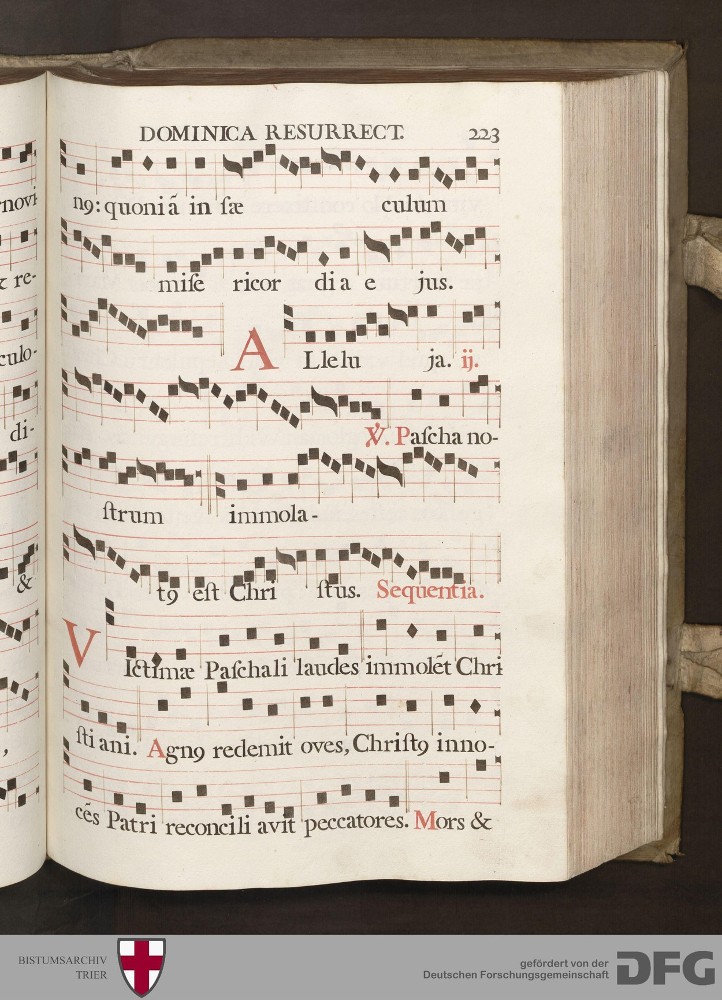 DOMINICA RESURRECT. 223
n9: quoniã in ſæ culum
miſe ricor di a e jus.
A Lle lu ja. ij.
℣. Paſcha no-
ſtrum immola-
t9 eſt Chri ſtus. Sequentia.
V Ictimæ Paſchali laudes immolẽt Chri
ſti ani. Agn9 redemit oves, Chriſt9 inno-
cẽs Patri reconcili avit peccatores. Mors &
novi
& re-
culo-
di-
&
BISTUMSARCHIV
TRIER
gefördert von der
Deutschen Forschungsgemeinschaft
DFG